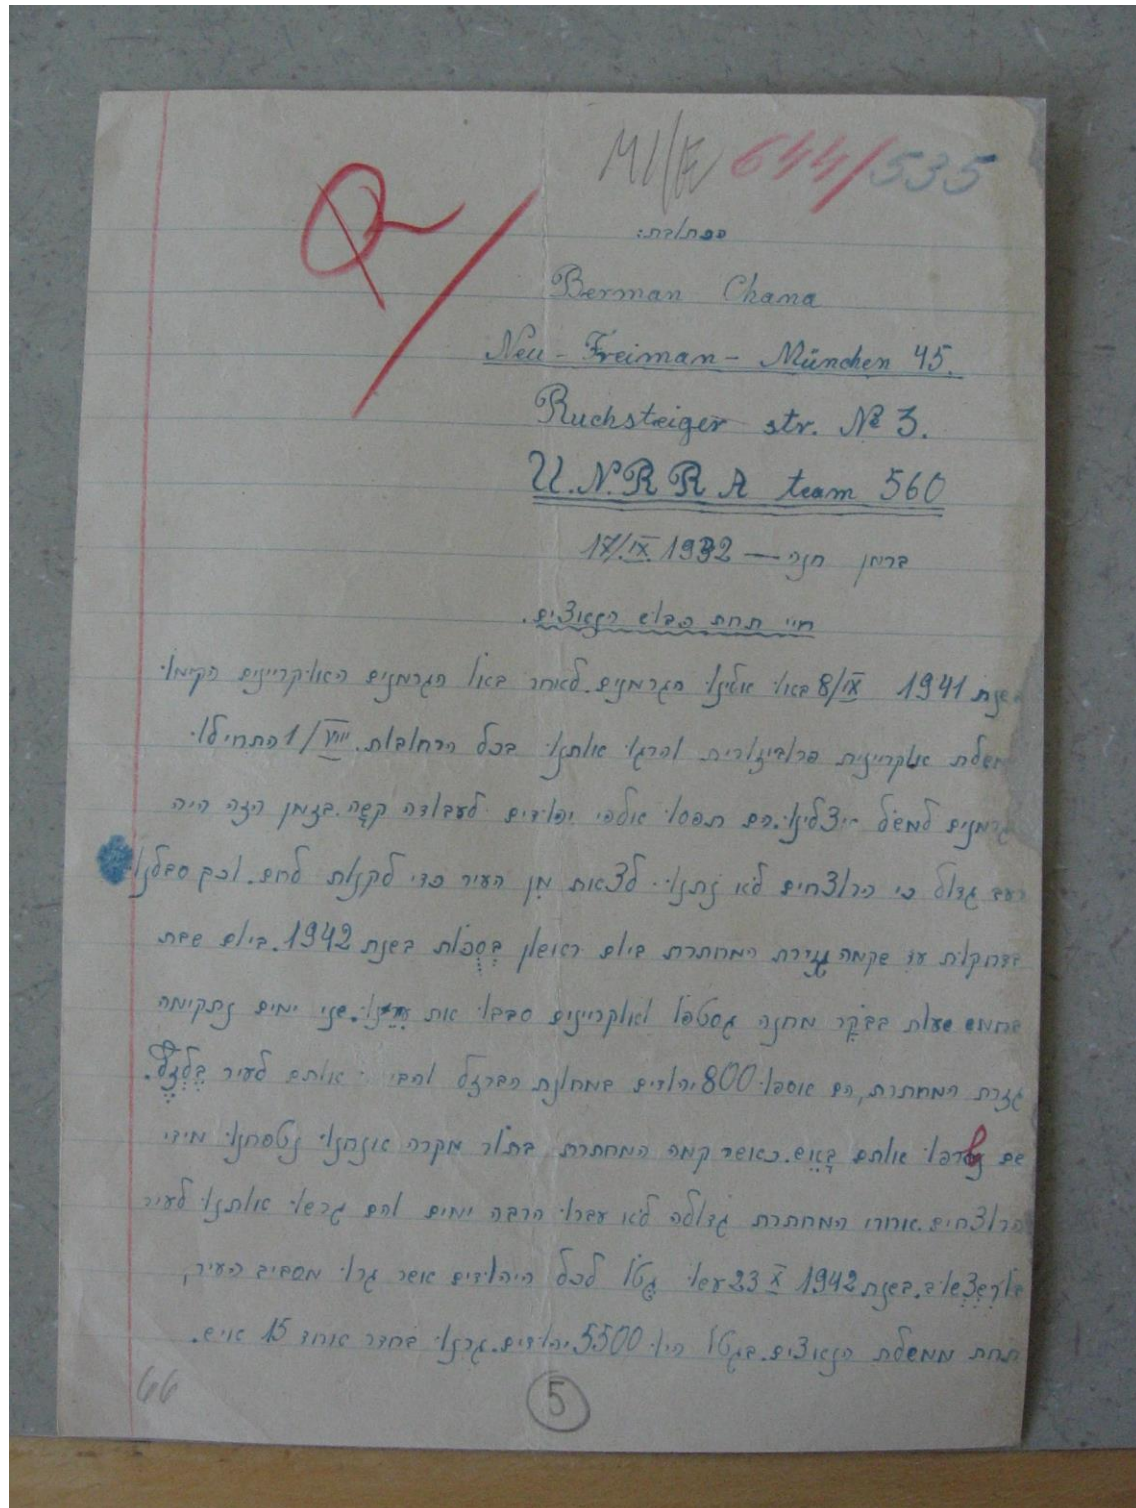 M1/E 644/535
הכתובת:
Berman Chana
Neu - Freiman - München 45.
Ruchsteiger str. № 3.
U.N.R.R.A team 560
ברמן חנה — 17/IX 1932
חיי תחת כבוש הנאצים.
בשנת 1941 8/IX באו אלינו הגרמנים. לאחר באו הגרמנים האוקריינים הקימו
משלת אוקריינית פרוביזורית והרגו אותנו בכל הרחובות. 1/VIII התחילו
גרמנים למשול אצלינו. הם תפסו אלפי יהודים לעבודה קשה. בזמן הזה היה
רעב גדול כי הרוצחים לא נתנו לצאת מן העיר כדי לקנות לחם. וכך סבלנו
עד שקמה גזרת המחתרת ביום ראשון בסכות בשנת 1942. ביום שבת
בחמש שעות בבקר מחנה גסטפו ואוקריינים סבבו את ערנו. שני ימים נתקימה
גזרת המחתרת, הם אספו 800 יהודים במחונת הברזל והביאו אותם לעיר בלזץ.
שם שרפו אותם באש. כאשר קמה המחתרת בתור מקרה אנחנו נטסחנו מידי
הרוצחים. אחרי המחתרת גדולה לא עברו הרבה ימים והם גרשו אותנו לעיר
בורשצשוב. בשנת 1942 X 23 עשו גטו לכל היהודים אשר גרו מסביב העיר,
תחת ממשלת הנאצים. בגטו היו 5500 יהודים. גרנו בחדר אחד 15 איש.
66
5